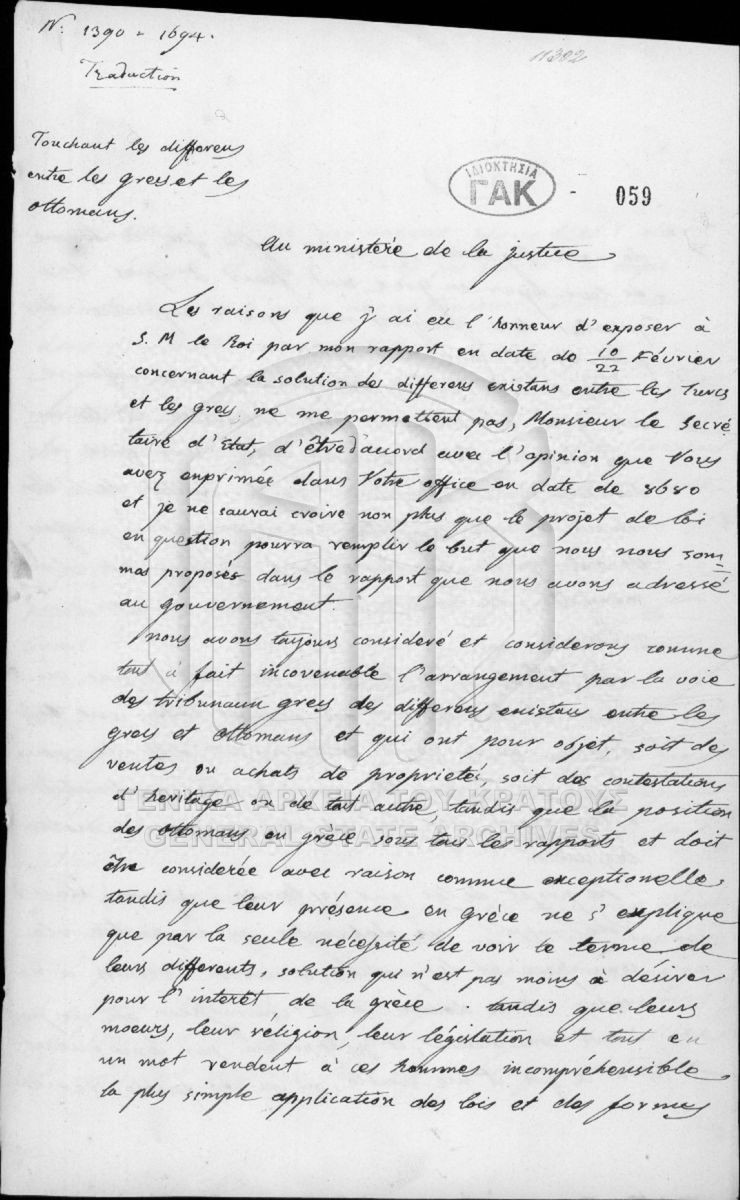 N: 1390 - 1694.
11382
Traduction
Touchant les differens
entre les grecs et les
ottomans.
ΙΔΙΟΚΤΗΣΙΑ
ΓΑΚ
059
Au ministère de la justice
Les raisons que j'ai eu l'honneur d'exposer à
S. M le Roi par mon rapport en date de 10/22 Février
concernant la solution des differens existans entre les Turcs
et les grecs, ne me permettent pas, Monsieur le Secré
taire d'Etat, d'être d'accord avec l'opinion que Vous
avez exprimée dans Votre office en date de 8680
et je ne saurai croire non plus que le projet de loi
en question pourra remplir le but que nous nous som=
mes proposés dans le rapport que nous avons adressé
au gouvernement.
Nous avons toujours consideré et considerons comme
tout à fait incovenable l'arrangement par la voie
des tribunaux grecs des differens existans entre les
grecs et Ottomans et qui ont pour objet, soit des
ventes ou achats de proprieté, soit des contestations
d'heritage ou de tout autre, tandis que la position
des ottomans en grèce sous tous les rapports et doit
être considerée avec raison comme exceptionelle,
tandis que leur présence en Grèce ne s'explique
que par la seule nécessité de voir le terme de
leurs differents, solution qui n'est pas moins à désirer
pour l'interêt de la grèce. tandis que leurs
moeurs, leur réligion, leur législation et tout en
un mot rendent à ces hommes incompréhensible
la plus simple application des lois et des formes
ΓΕΝΙΚΑ ΑΡΧΕΙΑ ΤΟΥ ΚΡΑΤΟΥΣ
GENERAL STATE ARCHIVES